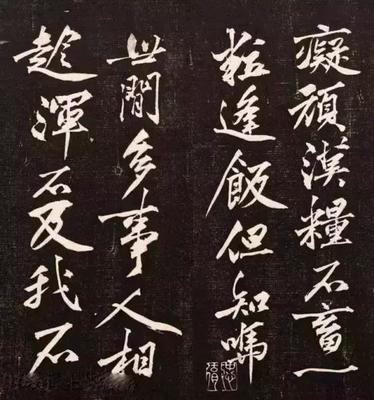 癡頑漢糧不畜一
粒逢飯但知
世間多事人相
趁渾不及我不